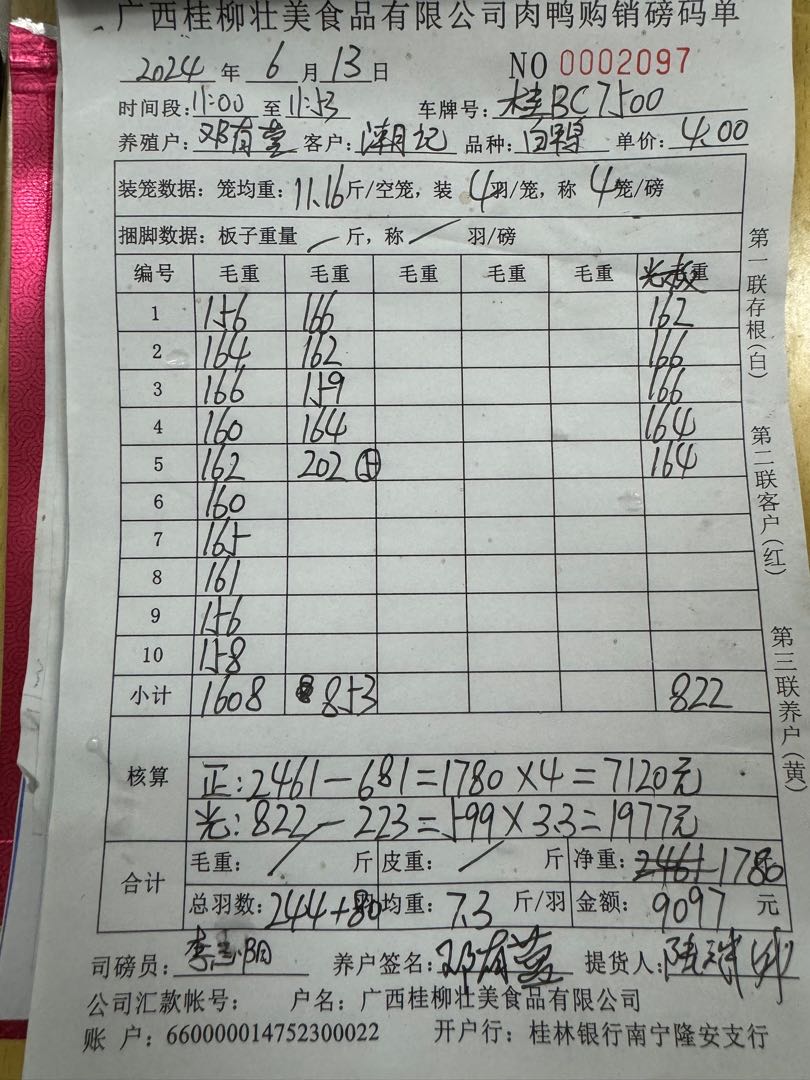 广西桂柳壮美食品有限公司肉鸭购销磅码单
2024 年 6 月 13 日 NO 0002097
时间段: 11:00 至 11:53 车牌号: 桂BC7500
养殖户: 邓有莹 客户: 潮记 品种: 白鸭 单价: 4.00
装笼数据: 笼均重: 11.16 斤/空笼, 装 4 羽/笼, 称 4 笼/磅
捆脚数据: 板子重量 / 斤, 称 / 羽/磅
编号 毛重 毛重 毛重 毛重 毛重 光板 重
1 156 166 162
2 164 162 166
3 166 159 166
4 160 164 164
5 162 202 ⑤ 164
6 160
7 165
8 161
9 156
10 158
小计 1608 853 822
核算
正: 2461-681=1780×4=7120元
光: 822-223=599×3.3=1977元
合计
毛重: / 斤 皮重: / 斤 净重: 2461 1780
总羽数: 244+80 均重: 7.3 斤/羽 金额: 9097 元
司磅员: 养户签名: 邓有莹 提货人:
公司汇款帐号: 户名: 广西桂柳壮美食品有限公司
账 户: 660000014752300022 开户行: 桂林银行南宁隆安支行
第一联存根(白)
第二联客户(红)
第三联养户(黄)